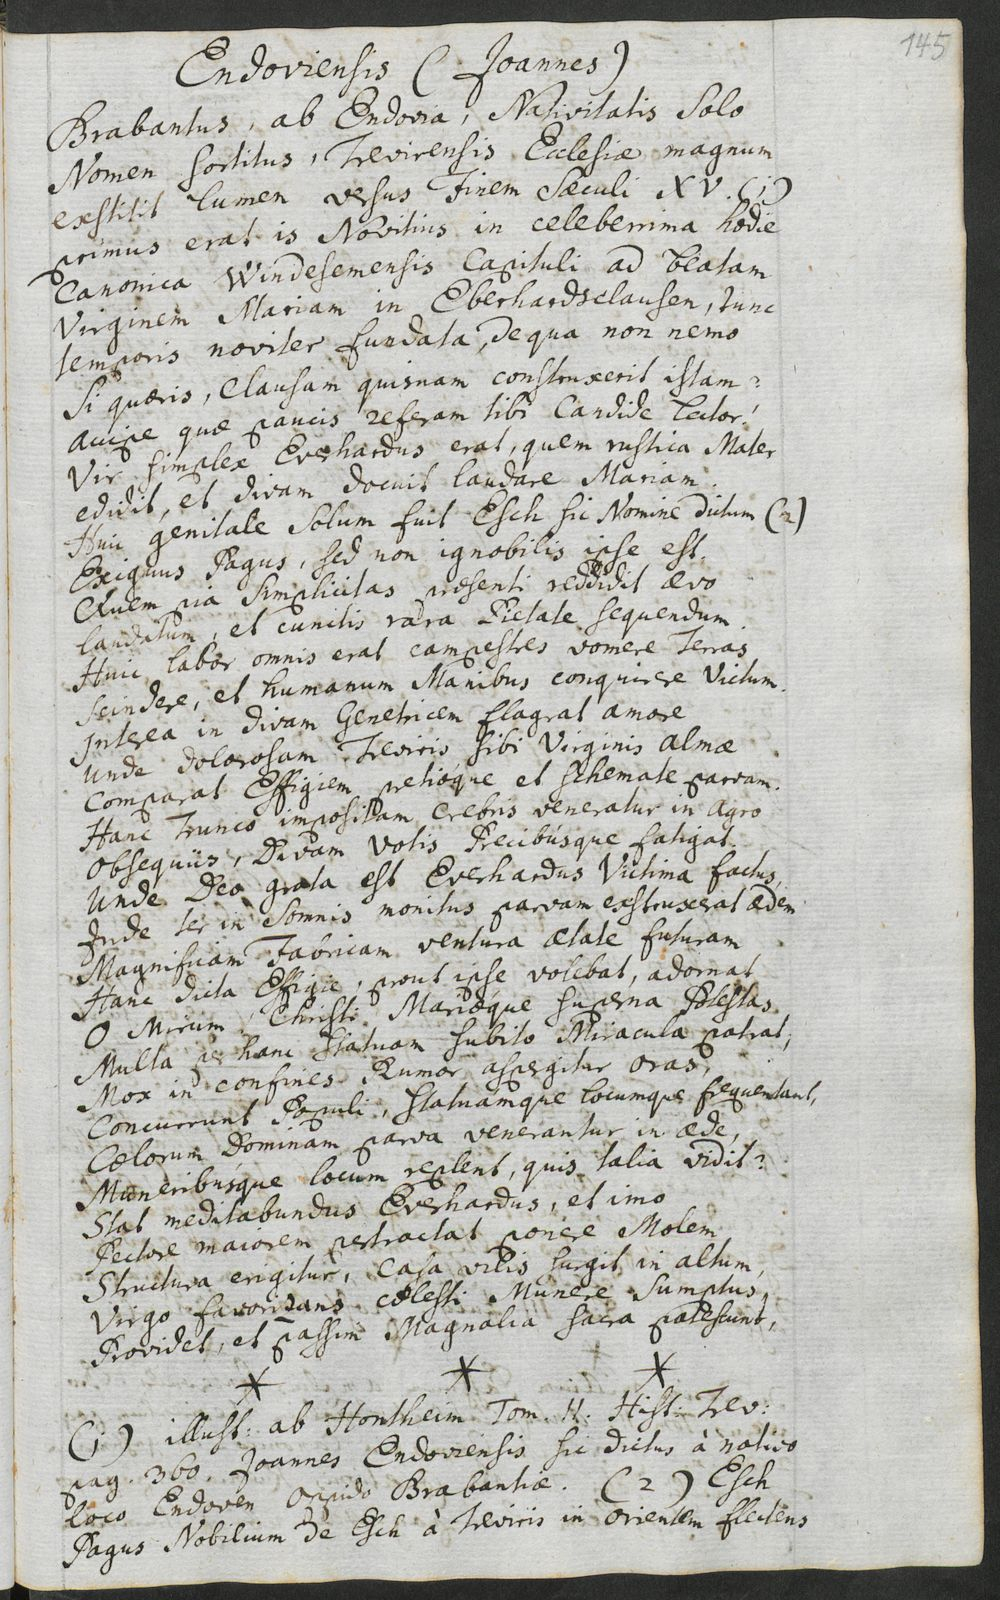 145
Endoviensis (Joannes)
Brabantus, ab Endovia, Nativitatis Solo
Nomen sortitus, Trevirensis Ecclesiæ magnum
exstitit lumen versus Finem Sæculi XV. (1)
primus erat is Novitius in celeberrima hodie
Canonica Windesemensis Capituli ad beatam
Virginem Mariam in Eberhardsclausen, tunc
temporis noviter fundata, de qua non nemo
Si quæris, Clausam quisnam construxerit istam?
accipe quæ paucis referam tibi Candide Lector!
Vir simplex Everhardus erat, quem rustica Mater
edidit, et divam docuit laudare Mariam.
Huic genitale Solum fuit Esch sic Nomine dictum (2)
Exiguus Pagus, sed non ignobilis ipse est.
Quem pia Simplicitas præsenti reddidit ævo
laudatum, et cunctis rara Pietate sequendum.
Huic labor omnis erat campestres vomere Terras
scindere, et humanum Manibus conquirere Victum.
Interea in divam Genetricem flagrat amore
Unde dolorosam Treviris sibi Virginis almæ
Comparat Effigiem, pretioque et schemate parvam.
Hanc Trunco impositam crebris veneratur in Agro
Obsequiis, Divam Votis Precibusque fatigat.
Unde Deo grata est Everhardus Victima factus,
Inde ter in Somnis monitus parvam exstruxerat ædem
Magnificam Fabricam ventura ætate futuram
Hanc dicta Effigie, prout ipse volebat, adornat
O Mirum! Christi Mariæque superna Potestas
Multa per hanc Statuam subito Miracula patrat,
Mox in confines Rumor aspergitur oras,
Concurrunt Populi, statuamque locumque frequentant,
Cælorum Dominam parva venerantur in æde,
Muneribusque locum replent, quis talia vidit?
Stat meditabundus Everhardus, et imo
Pectore maiorem pertractat ponere Molem
Structura erigitur, Casa vilis surgit in altum,
Virgo favorizans cœlesti Munere Sumptus,
Providet, et passim Magnalia sacra patescunt,
* * *
(1) illust: ab Hontheim Tom. II. Hist: Trev:
pag. 360. Joannes Endoviensis sic dictus à nativo
loco Endoven Oppido Brabantiæ. (2) Esch
Pagus Nobilium de Esch à Treviris in orientem flectens